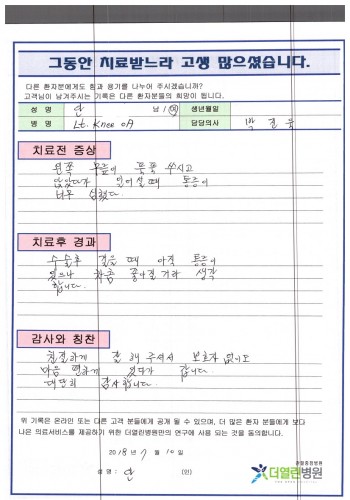 그동안 치료받느라 고생 많으셨습니다.
다른 환자분에게도 힘과 용기를 나누어 주시겠습니까?
고객님이 남겨주시는 기록은 다른 환자분들의 희망이 됩니다.
성 명 안 남 / 여 생년월일
병 명 Lt. Knee OA 담당의사 박
치료전 증상
왼쪽 무릎이 쑤시고
앉았다가 일어설때 통증이
너무 심했다.
치료후 경과
수술후 걸을 때 아직 통증이
있으나 차츰 좋아질 거라 생각
합니다.
감사와 칭찬
친절하게 잘 해 주셔서 보호자 없이도
마음 편하게 있다가 갑니다.
대단히 감사합니다.
위 기록은 온라인 또는 다른 고객 분들에게 공개 될 수 있으며, 더 많은 환자 분들에게 보다
나은 의료서비스를 제공하기 위한 더열린병원만의 연구에 사용 되는 것을 동의합니다.
2018년 7월 10일
성명: 안 (인)
더열린병원